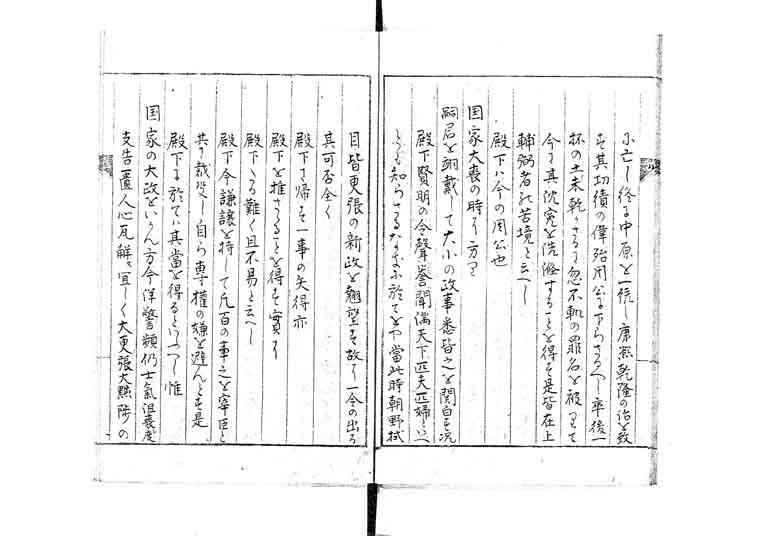 に亡し終に中原を一統し康熙乾隆の治を致
す其功績の偉殆周公に下らさるへし卒後一
抔の土未乾かさるに忽不軌の罪名を被りて
今に其沈寃を洗滌することを得す是皆在上
輔弼者の苦境と云へし
殿下ハ今の周公也
国家大喪の時に方り
嗣君を翊戴して大小の政事悉皆之を関白す况
殿下賢明の令聲誉聞満天下匹夫匹婦といへ
とも知らさるなきに於てをや當此時朝野拭
目皆更張の新政を翹望す故に一令の出る
其可否全く
殿下に帰す一事の失得亦
殿下を推さゝることを得す實に
殿下たる難く且不易と云へし
殿下今謙譲を持して凡百の事之を宰臣と
共に裁决し自ら専權の嫌を避んとす是
殿下に於てハ其當を得るといつへし惟
国家の大政をいかん方今洋警頻仍士氣沮喪度
支告匱人心瓦解宜しく大更張大黜陟の